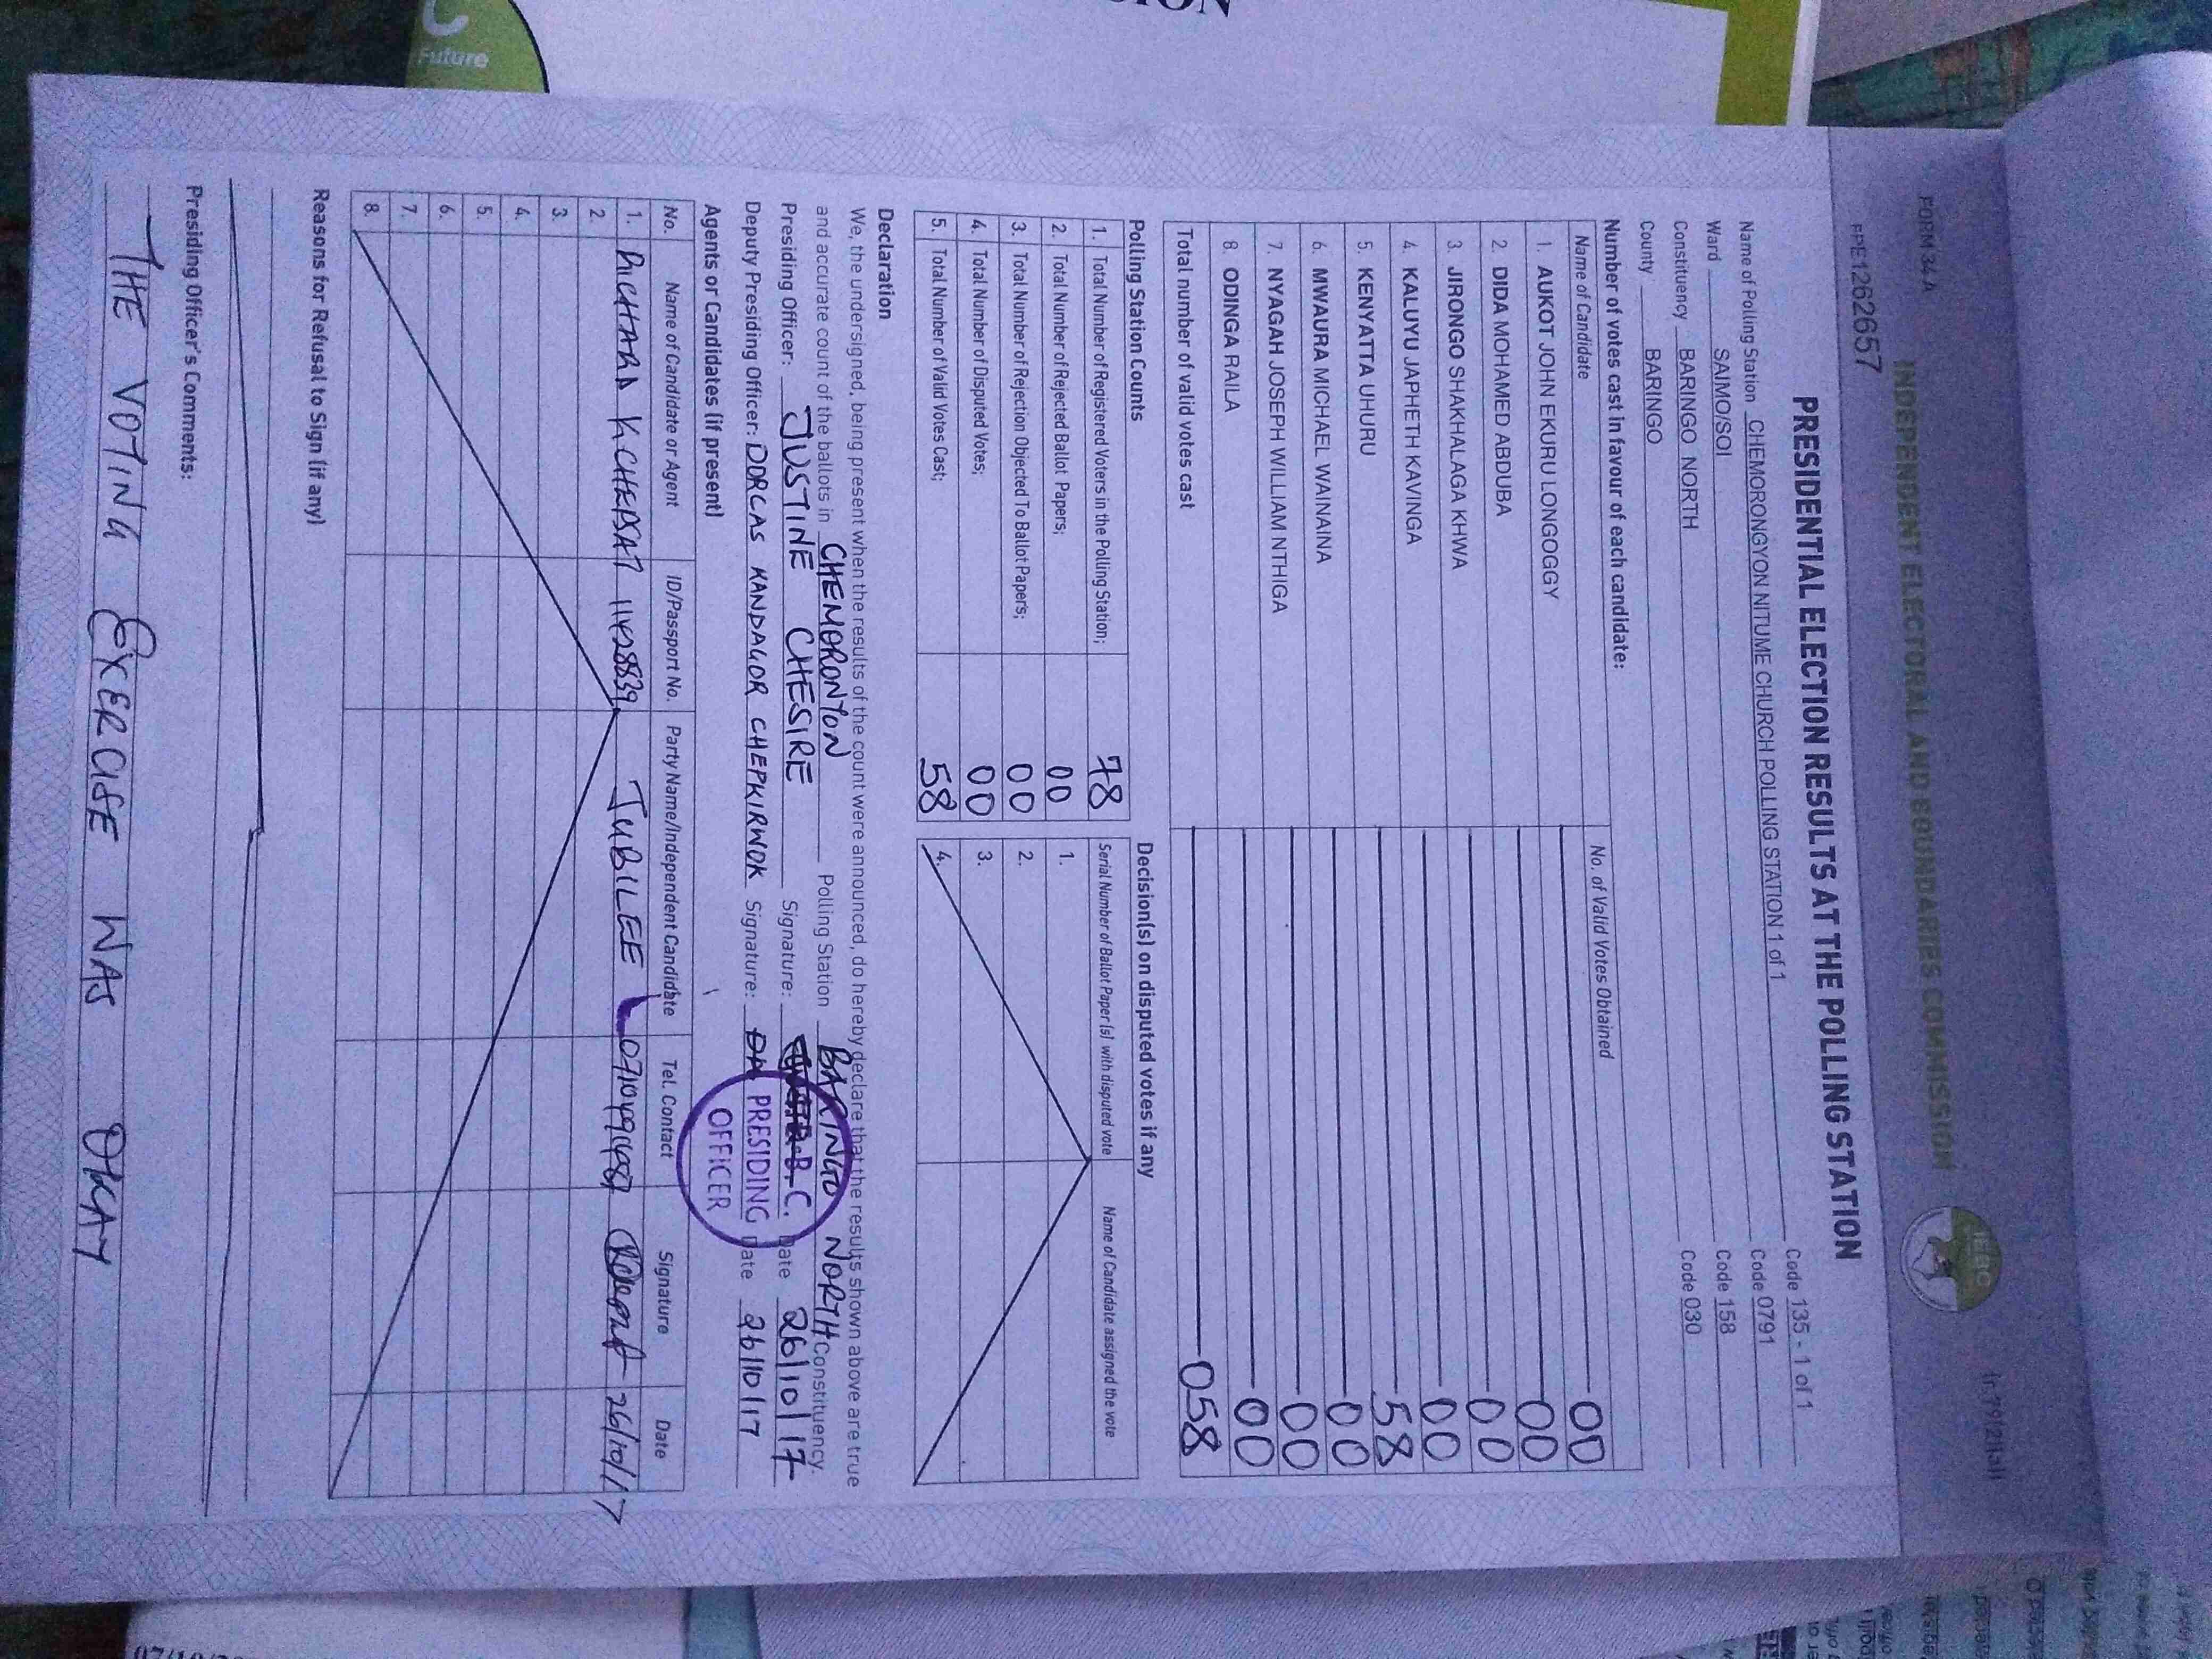 Future
FORM 34A
INDEPENDENT ELECTORAL AND BOUNDARIES COMMISSION
IEBC
PPE1262657
PRESIDENTIAL ELECTION RESULTS AT THE POLLING STATION
Name of Polling Station CHEMORONGYON NITUME CHURCH POLLING STATION 1 of 1 Code 135 - 1 of 1
Ward SAIMO/SOI Code 0791
Constituency BARINGO NORTH Code 158
County BARINGO Code 030
Number of votes cast in favour of each candidate:
Name of Candidate No. of Valid Votes Obtained
1. AUKOT JOHN EKURU LONGOGGY 00
2. DIDA MOHAMED ABDUBA 00
3. JIRONGO SHAKHALAGA KHWA 00
4. KALUYU JAPHETH KAVINGA 00
5. KENYATTA UHURU 58
6. MWAURA MICHAEL WAINAINA 00
7. NYAGAH JOSEPH WILLIAM NTHIGA 00
8. ODINGA RAILA 00
Total number of valid votes cast 058
Polling Station Counts Decision(s) on disputed votes if any
1. Total Number of Registered Voters in the Polling Station; 78 Serial Number of Ballot Paper (s) with disputed vote Name of Candidate assigned the vote
2. Total Number of Rejected Ballot Papers; 00 1.
3. Total Number of Rejection Objected To Ballot Papers; 00 2.
4. Total Number of Disputed Votes; 00 3.
5. Total Number of Valid Votes Cast; 58 4.
Declaration
We, the undersigned, being present when the results of the count were announced, do hereby declare that the results shown above are true
and accurate count of the ballots in CHEMORONYON Polling Station BARINGO NORTH Constituency.
Presiding Officer: JUSTINE CHESIRE Signature: Date 26/10/17
Deputy Presiding Officer: DORCAS KANDAGOR CHEPKIRWOK Signature: Date 26/10/17
PRESIDING
OFFICER
Agents or Candidates (if present)
No. Name of Candidate or Agent ID/Passport No. Party Name/Independent Candidate Tel. Contact Signature Date
1. RICHARD K JUBILEE 26/10/17
2.
3.
4.
5.
6.
7.
8.
Reasons for Refusal to Sign (if any)
Presiding Officer's Comments:
THE VOTING EXERCISE WAS OKAY